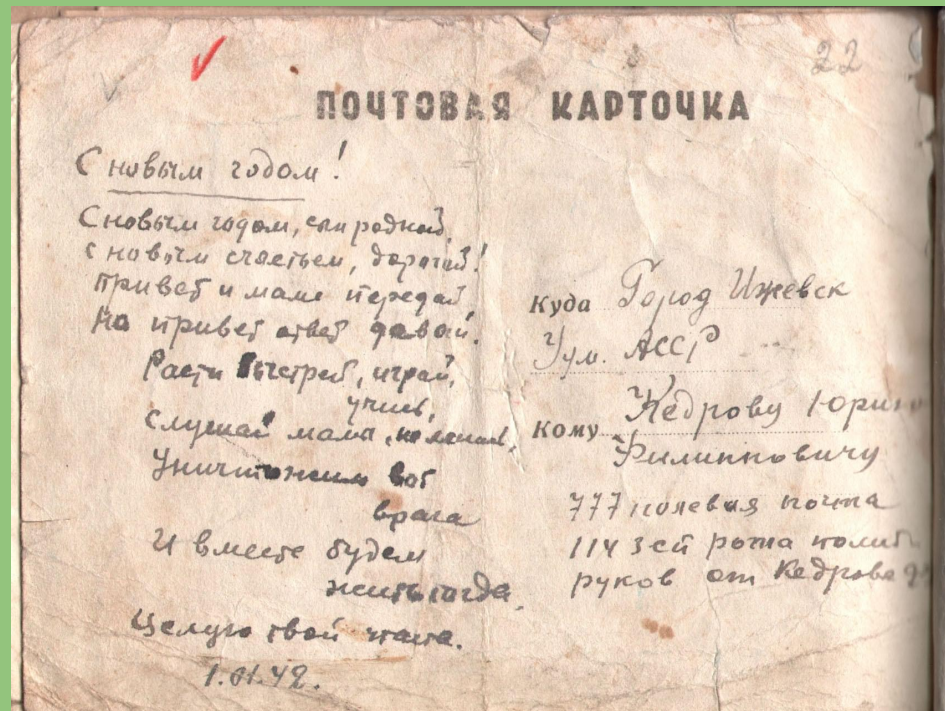 22
ПОЧТОВАЯ КАРТОЧКА
С новым годом!
С новым годом, сын родной,
с новым счастьем, дорогой!
привет и маме передай,
на привет ответ давай.
Расти быстрей, играй,
учись,
слушай мамы, не ленись,
Уничтожим вот
врага
И вместе будем
жить тогда.
Целую твой папа.
1.01.42.
Куда Город Ижевск
Удм. АССР
Кому Кедрову Юрию
Филипповичу
777 полевая почта
114 зсп рота полит
руков от Кедрова